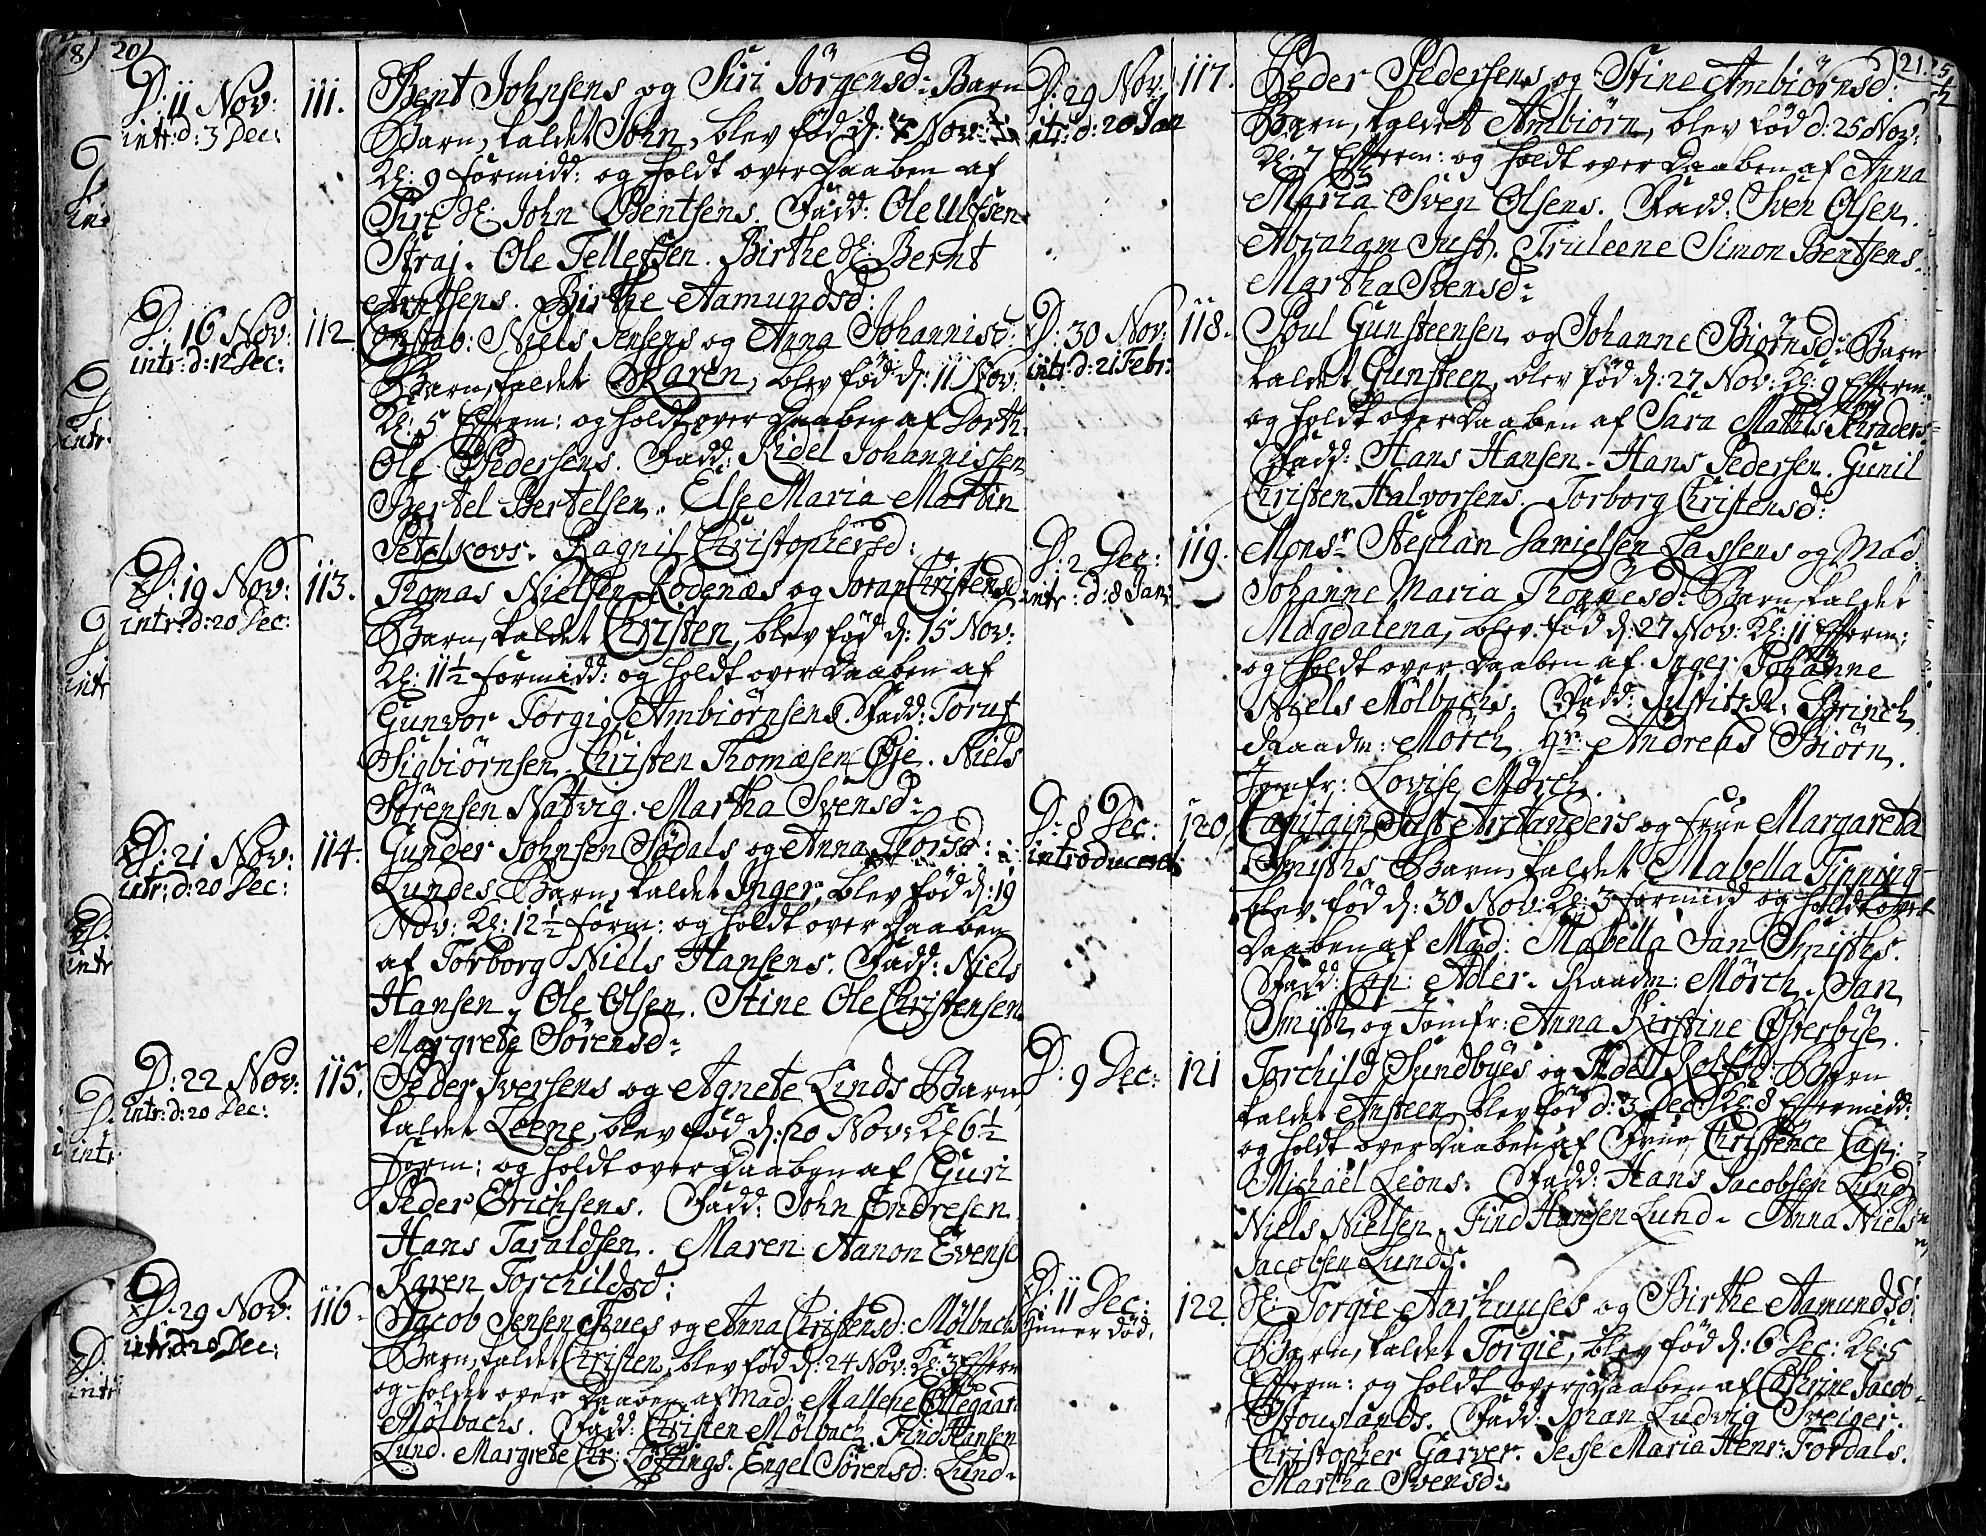 20)
D: 11 Nov:
intr: d: 3 Dec:
111.
Bent Johnsens og Siri Jörgensd: Barn
Barn, kaldet John, blev föd d: 7 Nov:
Kl: 9 formidd: og holdt over Daaben af
Siri Sl: John Bentsens. Fadd: Ole Ulfsen
Straj. Ole Tellefsen. Birthe Sl: Bernt
Arntsens. Birthe Aamundsd:
D: 16 Nov:
intr: d: 12 Dec:
112
Niels Jensens og Anna Johannisd:
Barn, kaldet Karen, blev föd d: 11 Nov:
Kl: 5 Efterm: og holdt over Daaben af Dorth.
Ole Pedersens. Fadd: Kidel Johannissen
Bertel Bertelsen. Else Maria Martin
Petelkovs. Ragnil Christophersd:
D: 19 Nov:
intr: d: 20 Dec:
113.
Thomas Nielsen Rodenæs og Joran Christensd
Barn, kaldet Christen, blev föd d: 15 Nov:
Kl: 11½ formidd: og holdt over Daaben af
Gunvor Torgi Ambiörnsens. Fadd: Toruf
Sigbiörnsen. Christen Thomæsen Öje. Niels
Sörensen Nattvig. Martha Svensd:
D: 21 Nov:
intr: d: 20 Dec:
114.
Gunder Johnsen Södals og Anna Thorsd:
Lundes Barn, kaldet Inger, blev föd d: 19
Nov: Kl: 12½ form: og holdt over Daaben
af Torborg Niels Hansens. Fadd: Niels
Hansen, Ole Olsen. Stine Ole Christensen
Margrete Sörensd:
D: 22 Nov:
intr: d: 20 Dec:
115.
Peder Iversens og Agnete Linds Barn,
kaldet Leene, blev föd d: 20 Nov: Kl 6½
form: og holdt over Daaben af Guri
Peder Erichsens. Fadd: John Endresen
Hans Taraldsen. Maren Aanon Evens.
Karen Torchildsd:
D: 29 Nov:
intr: d: 20 Dec:
116.
Jacob Jensen Tues og Anna Christensd: Mölbachs
Barn, kaldet Christen, blev föd d: 24 Nov: Kl: 3 Efterm
og holdet over Daaben af Mad: Mallene Ollegaard
Mölbachs. Fadd: Christen Mölbach. Find Hansen
Lund. Margrete Chr: Lössings. Engel Sörensd: Lund.
21.
D: 29 Nov:
intr: d: 20 Jan
117.
Peder Pedersens og Stine Ambiörnsd:
Barn, kaldet Ambiörn, blev föd d: 25 Nov:
Kl: 7 Efterm: og holdt over Daaben af Anna
Maria Sven Olsens. Fadd: Sven Olsen.
Abraham Just. Truleene Simon Bentsens.
Martha Svensd:
D: 30 Nov:
intr: d: 21 Febr:
118.
Poul Gunsteensen og Johanne Biörnsd: Barn
kaldet Gunsteen, blev föd d: 27 Nov: Kl: 9 Efterm:
og holdt over Daaben af Sara Mathis Schraders
Fadd: Hans Hansen. Hans Pedersen. Gunil
Christen Halvorsens. Torborg Christensd:
D: 2 Dec:
intr: d: 8 Jan:
119.
Monsr Stephan Danielsen Lassens og Mad:
Johanne Maria Thommesd: Barn, kaldet
Magdalena, blev föd d: 27 Nov: Kl: 11 Efterm:
og holdt over Daaben af Inger Johanne
Niels Mölbachs. Fadd: Justitz R: Brinch
Raadm: Mörch. Hr: Andreas Biörn.
Jomfr: Lovise Mörch.
D: 8 Dec:
introduceret
120
Capitain Just Arctanders og frue Margareta
Smiths Barn, kaldet Mabella Tinning
blev föd d: 30 Nov: Kl: 3 formidd og holdt over
Daaben af Mad: Mabella Jan Smiths.
Fadd: Cap: Adler. Raadm: Mörch. Jan
Smith og Jomfr: Anna Kirstine Österbye.
D: 9 Dec:
121
Torchild Sundbyes og Adel Rolfsd: Barn
kaldet Ansteen, blev föd d: 3 Dec: Kl: 8 Eftermidd:
og holdt over Daaben af Frue Christence Cap:
Michaël Leons. Fadd: Hans Jacobsen Lund
Niels Nielsen. Find Hansen Lund. Anna Niels
Jacobsen Lunds.
D: 11 Dec:
Hun er död.
122.
Sl: Torgie Aarhuuses og Birthe Aamundsd:
Barn, kaldet Torgie, blev föd d: 6 Dec: Kl: 5
Efterm: og holdt over Daaben af Cathrine Jacob
Stouslands. Fadd: Johan Ludvig Sveiger.
Christopher Garver. Jesse Maria Henr: Tordals.
Martha Svensd: